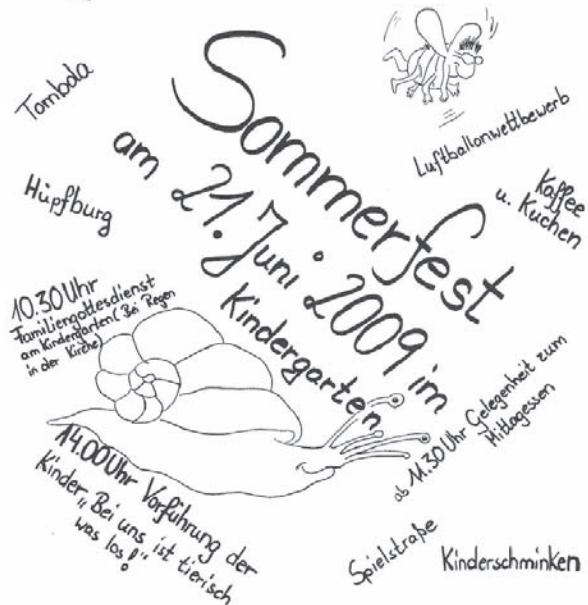 Sommerfest
am 21. Juni 2009 im
Kindergarten
Tombola
Hüpfburg
Luftballonwettbewerb
Kaffee
u. Kuchen
10.30 Uhr
Familiengottesdienst
am Kindergarten (Bei Regen
in der Kirche)
ab 11.30 Uhr Gelegenheit zum
Mittagessen
14.00 Uhr Vorführung der
Kinder „Bei uns ist tierisch
was los!"
Spielstraße
Kinderschminken